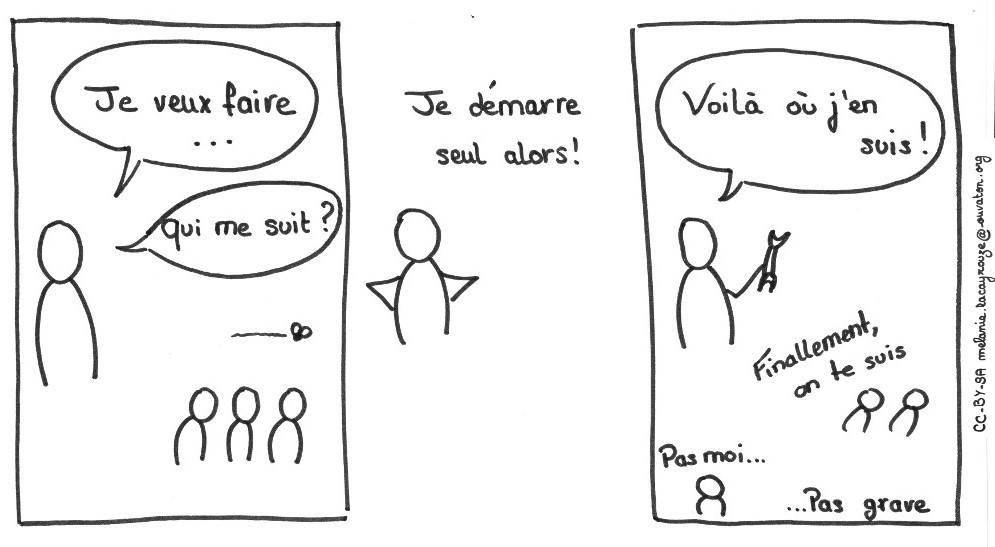 Je veux faire
...
qui me suit ?
Je démarre
seul alors!
Voilà où j'en
suis!
Finallement,
on te suis
Pas moi...
...Pas grave
CC-BY-SA melanie.lacayrouze@ouvaton.org